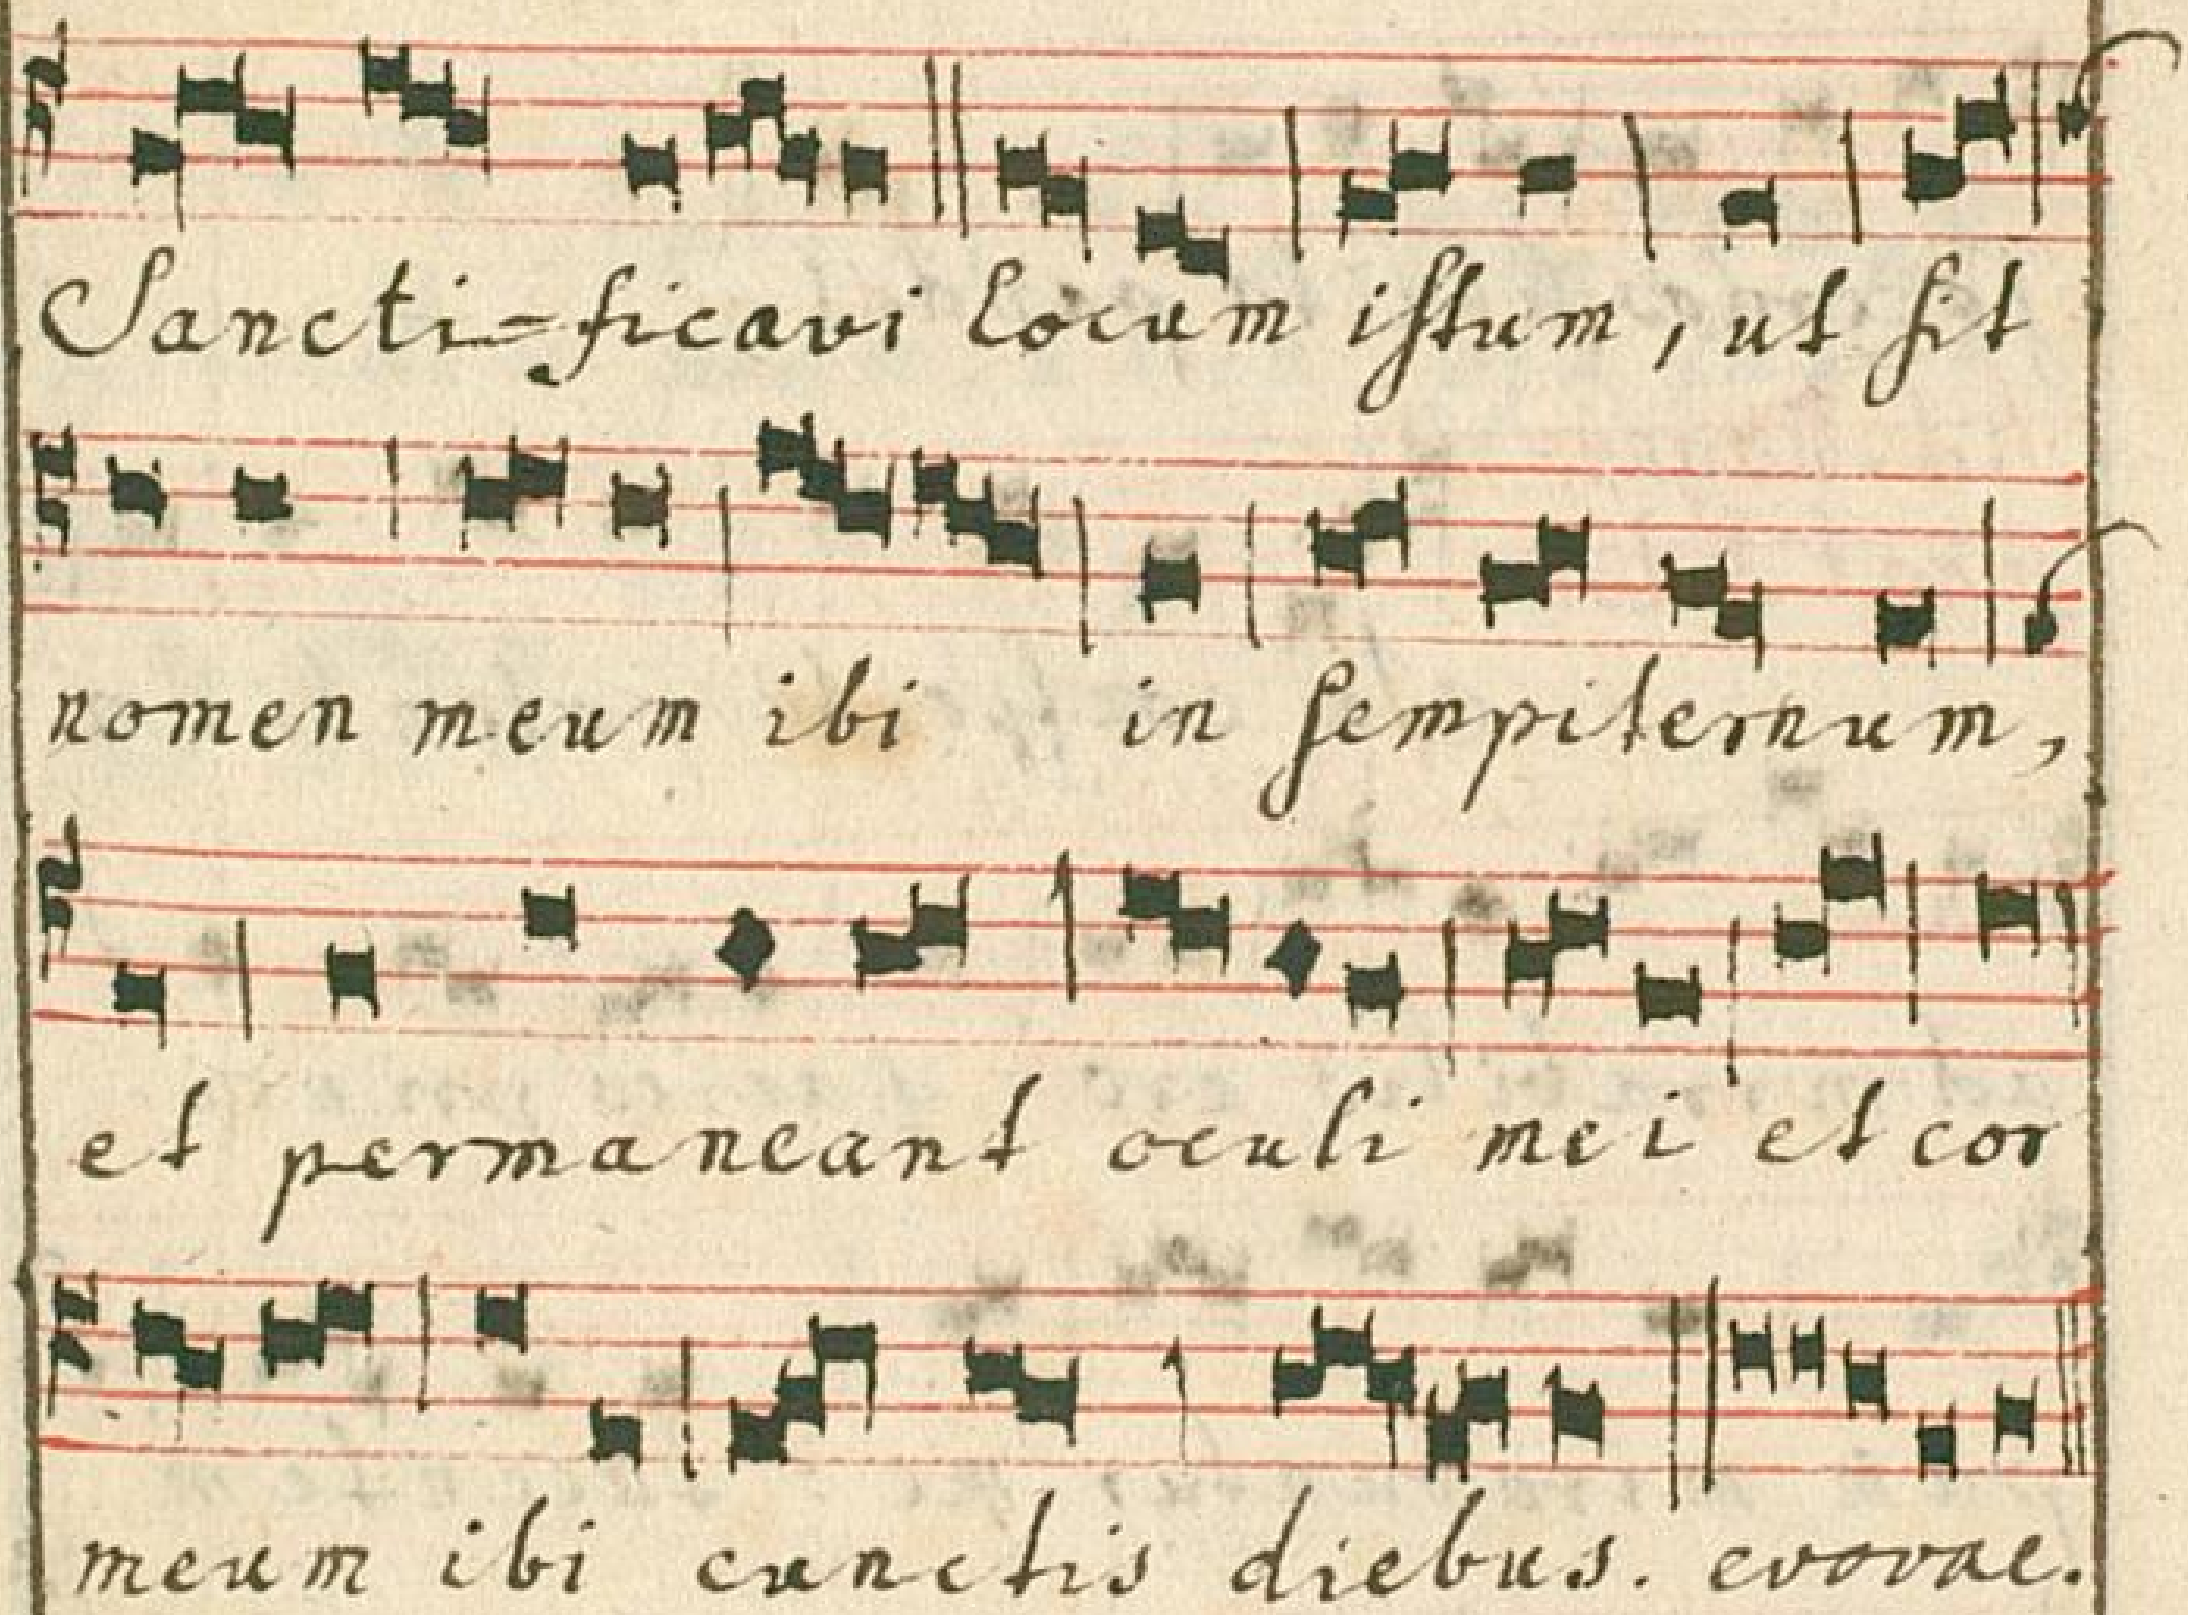 Sancti=ficavi locum iſtum, ut ſit
nomen meum ibi in ſempiternum,
et permaneant oculi mei et cor
meum ibi cunctis diebus. evovae.